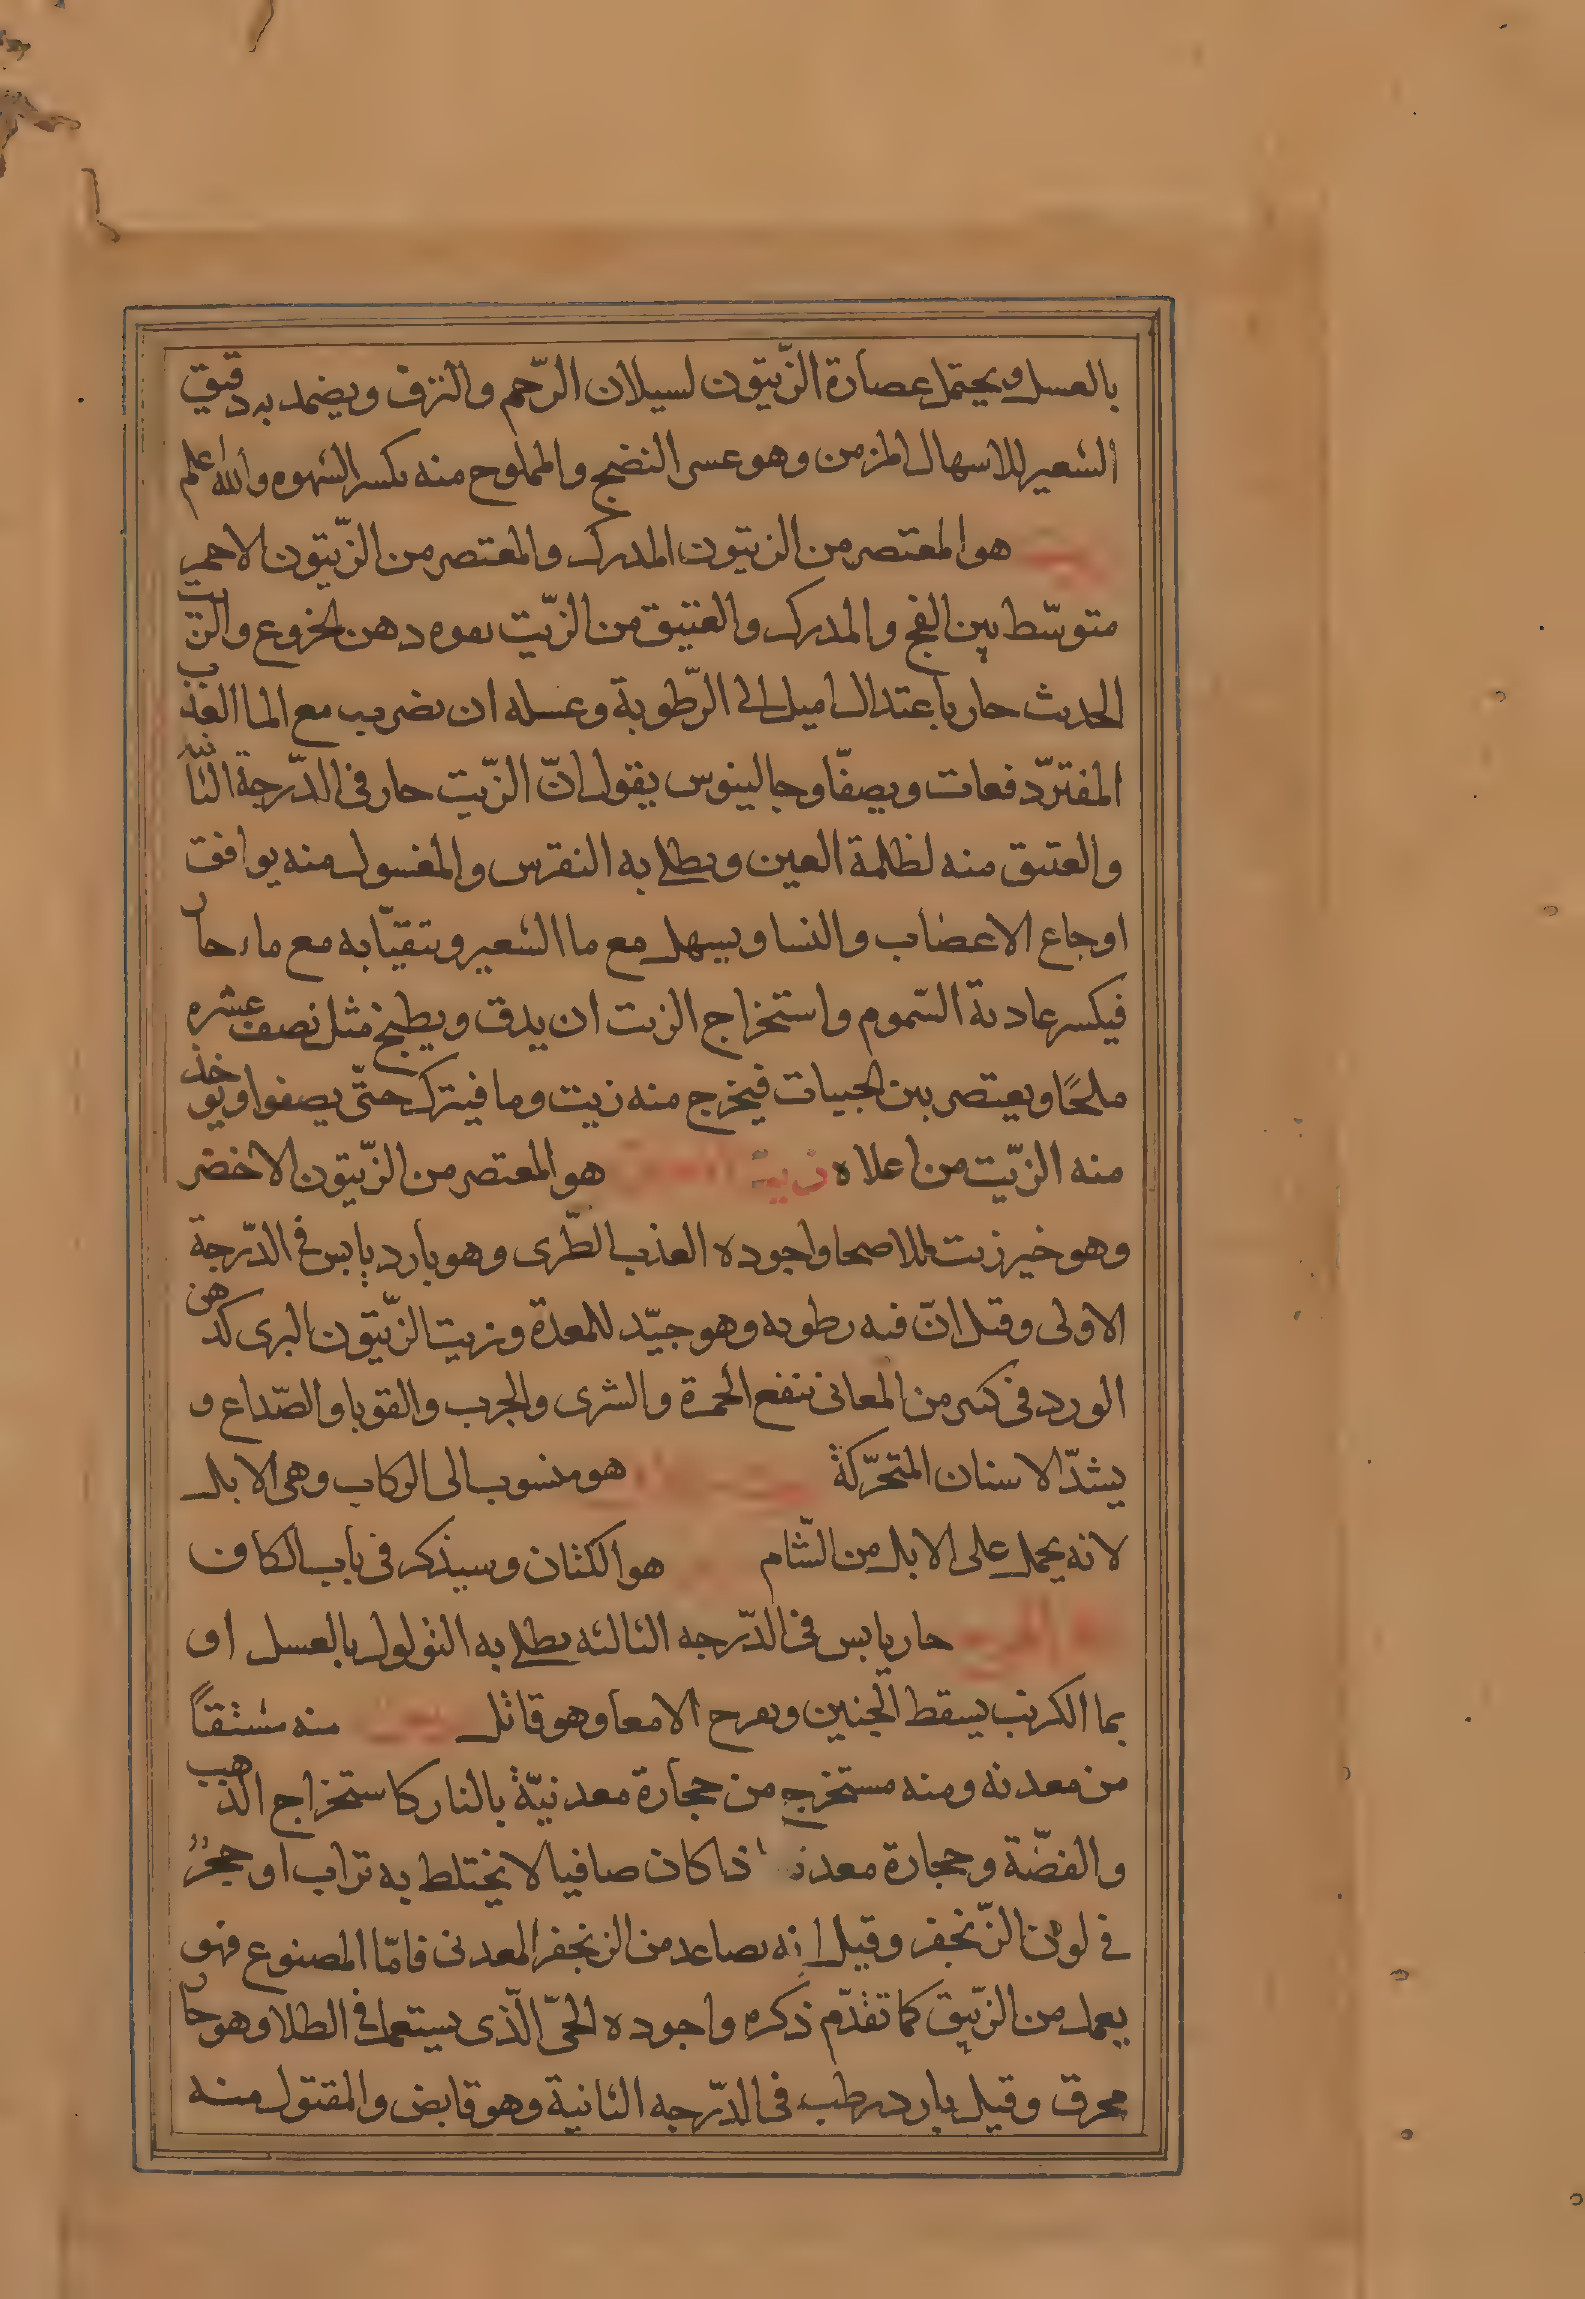 بالعسل ويحتمل عصارة الزّيتون لسيلان الرّحم والنزف ويضمد به دقيق
الشعير للاسهال المزمن وهو عسى النضج والمملوح منه يكسر الشهوه والله اعلم
هو المعتصر من الزيتون المدرك والمعتصر من الزّيتون الاحمر
متوسّط بين الفج والمدرك والعتيق من الزّيت بقوه دهن الخروع والزيت
الحديث حار باعتدال اميل الى الرّطوبة وغسله ان يضرب مع الما العذب
المفترّ دفعات ويصفّا وجالينوس يقول انّ الزّيت حار في الدّرجة الثانيه
والعتيق منه لظلمة العين ويطلى به النقرس والمغسول منه يوافق
اوجاع الاعضاب والنسا ويسهل مع ما الشعير ويتقيّا به مع ماء حار
فيكسر عادية السّموم واستخراج الزيت ان يدق ويطبخ مثل نصف عشره
ملحًا ويعتصر بين الجبيات فيخرج منه زيت وما فيترك حتّى يصفوا ويوخذ
منه الزّيت من اعلاه زيت هو المعتصر من الزّيتون الاخضر
وهو خير زيت للاصحا واجوده العذب الطّرى وهو بارد يابس في الدّرجة
الاولى وقيل انّ فيه رطوبه وهو جيّد للمعدة وزيت الزّيتون البرى كدهن
الورد في كثير من المعانى ينفع الحمرة والشرى والجرب والقوبا والصّداع و
يشدّ الاسنان المتحرّكة هو منسوب الى الركاب وهى الابل
لانه يحمل على الابل من الشّام هو الكثان وسيذكر في باب الكاف
حار يابس في الدّرجه الثالثه يطلى به الثولول بالعسل او
بما الكرنب يسقط الجنين ويقرح الامعا وهو قاتل منه مستقًا
من معدنه ومنه مستخرج من حجارة معدنيّة بالنار كاستخراج الذهب
والفضّة وحجارة معدنه اذا كان صافيا لا يختلط به تراب او حجرٌ
في لون الزّنجفر وقيل انه يصاعد من الزنجفر المعدنى فامّا المصنوع فهو
يعمل من الزّيبق كما تقدّم ذكره واجوده الحىّ الّذى يستعمل في الطلا وهو حار
محرق وقيل بارد رطب في الدّرجه الثانية وهو قابض والمقتول منه